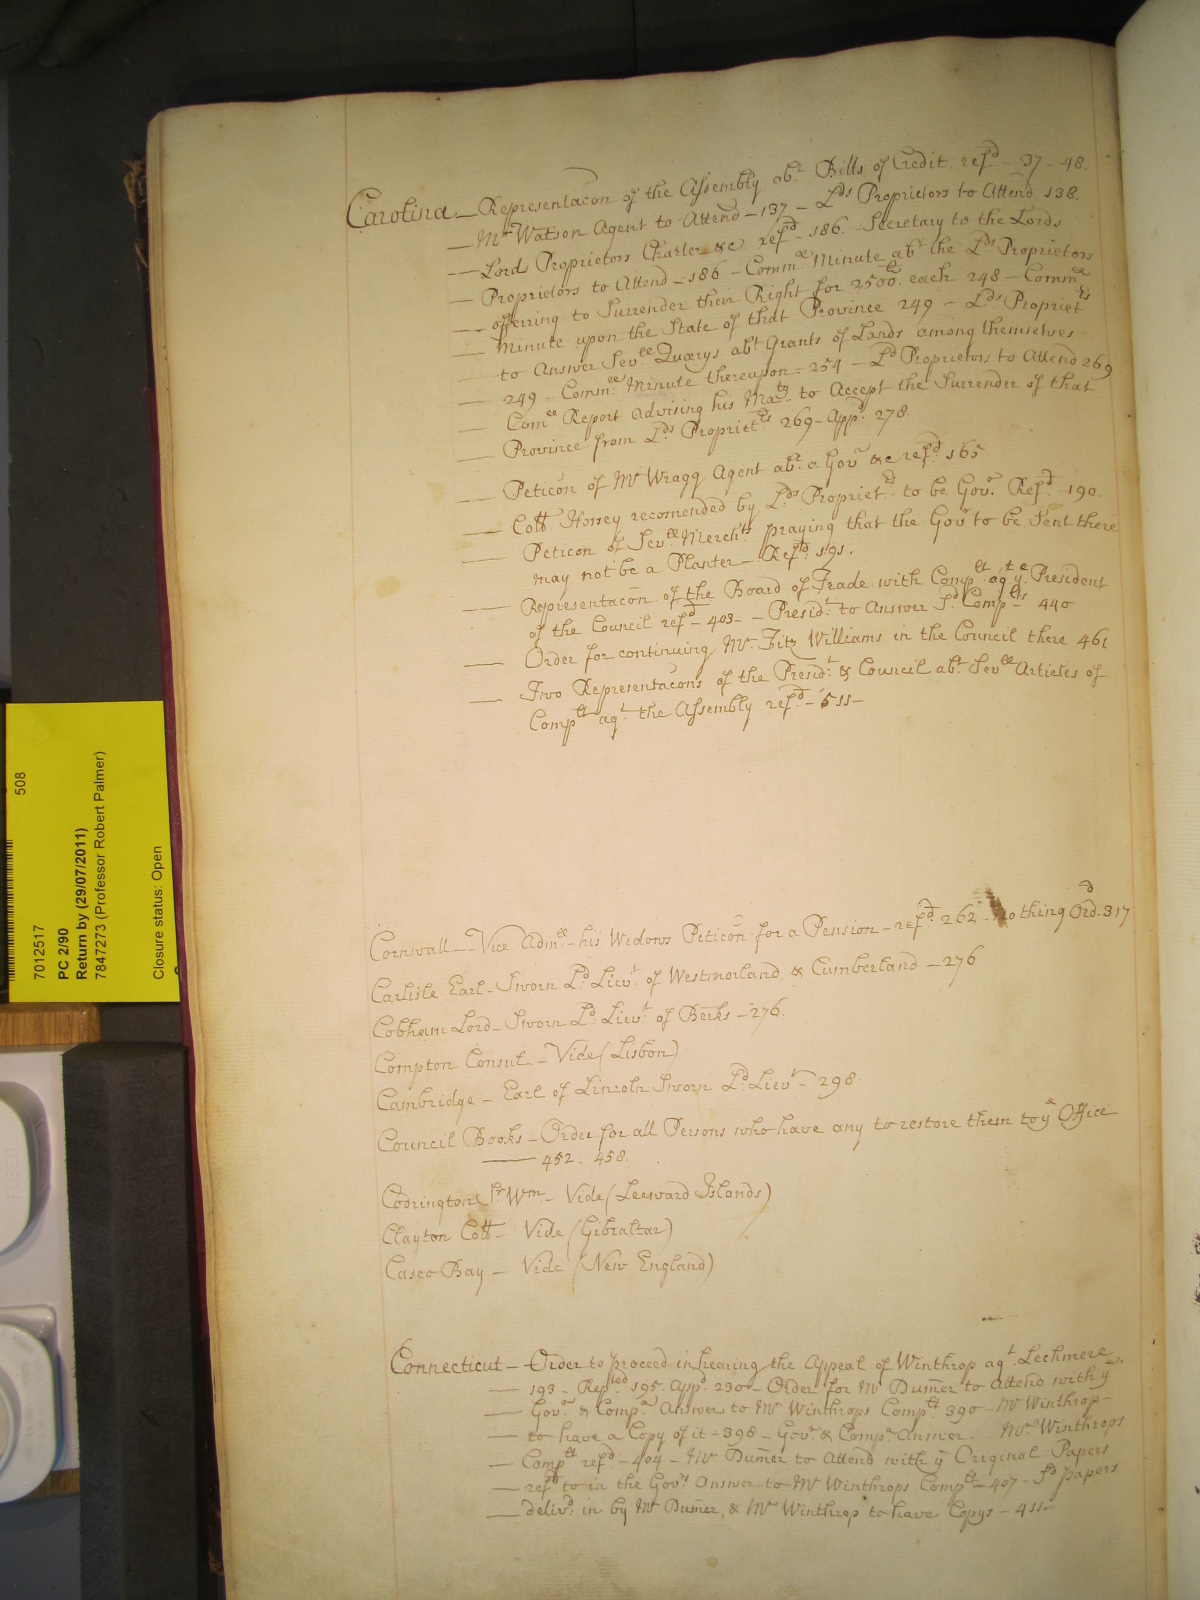 Carolina — Representacon of the Assembly abt. Bills of Credit refd — 37 — 48.
— Mr Watson Agent to Attend — 137 — Lds Proprietors to Attend 138.
— Lords Proprietors Charter &c refd — 186 — Secretary to the Lords
— Proprietors to Attend — 186 — Commee Minute abt the Lds Proprietors
— offering to Surrender their Right for 2500 each 248 — Commee
— Minute upon the State of that Province 249 — Lds Propriets
— to Answer Sevll Quærys abt Grants of Lands among themselves
— 249 — Commee Minute thereupon — 254 — Ld Proprietors to Attend 269
— Comee Report Advising his Maty to Accept the Surrender of that
— Province from Lds Propriets 269 — Appd 278
— Peticon of Mr Wragg Agent abt. a Govr &c refd 165
— Coll Horsey recomended by Lds Propriets to be Govr. Refd — 190.
— Peticon of Sevll Merchts praying that the Govr to be Sent there
may not be a Planter — Refd 191.
— Representacon of the Board of Trade with Complt agt ye President
of the Council refd — 403 — Presidt to Answer Sd Complts 440
— Order for continuing Mr. Fitz Williams in the Council there 461
— Two Representacons of the Presidt & Council abt Sevll Articles of
Complt agt. the Assembly refd — 511 —
Cornwall — Vice Adml — his Widows Peticon for a Pension — refd 262 — nothing Ord 317
Carlisle Earl — Sworn Ld Lievt of Westmorland & Cumberland — 276
Cobham Lord — Sworn Ld. Lievt of Berks — 276.
Compton Consul — Vide (Lisbon)
Cambridge — Earl of Lincoln Sworn Ld Lievt — 298
Council Books — Order for all Persons who have any to restore them to ye Office
— 452. 458.
Codrington Sr Wm — Vide (Leeward Islands)
Clayton Coll — Vide (Gibraltar)
Casco Bay — Vide (New England)
Connecticut — Order to proceed in hearing the Appeal of Winthrop agt. Lechmere
— 193 — Repted 195. Appd. 230 — Order for Mr Dumer to Attend with ye
— Govr. & Compa Answer to Mr Winthrops Complt 390 — Mr Winthrop
— to have a Copy of it — 398 — Govr. & Compa Answer. Mr. Winthrops
— Complt refd — 404 — Mr Dumer to Attend with ye Original Papers
— refd to in the Govrs Answer to Mr Winthrops Complt — 407 — Sd papers
— delivd. in by Mr Dumer, & Mr Winthrop to have Copys — 411 —
508
7012517
PC 2/90
Return by (29/07/2011)
7847273 (Professor Robert Palmer)
Closure status: Open